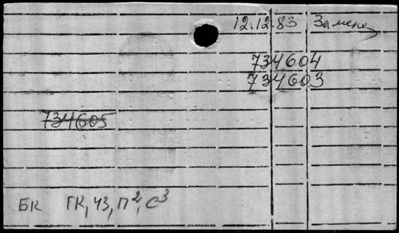 12.12.83 Замене
734604
734603
734605
БК ГК, ЧЗ, П², С³